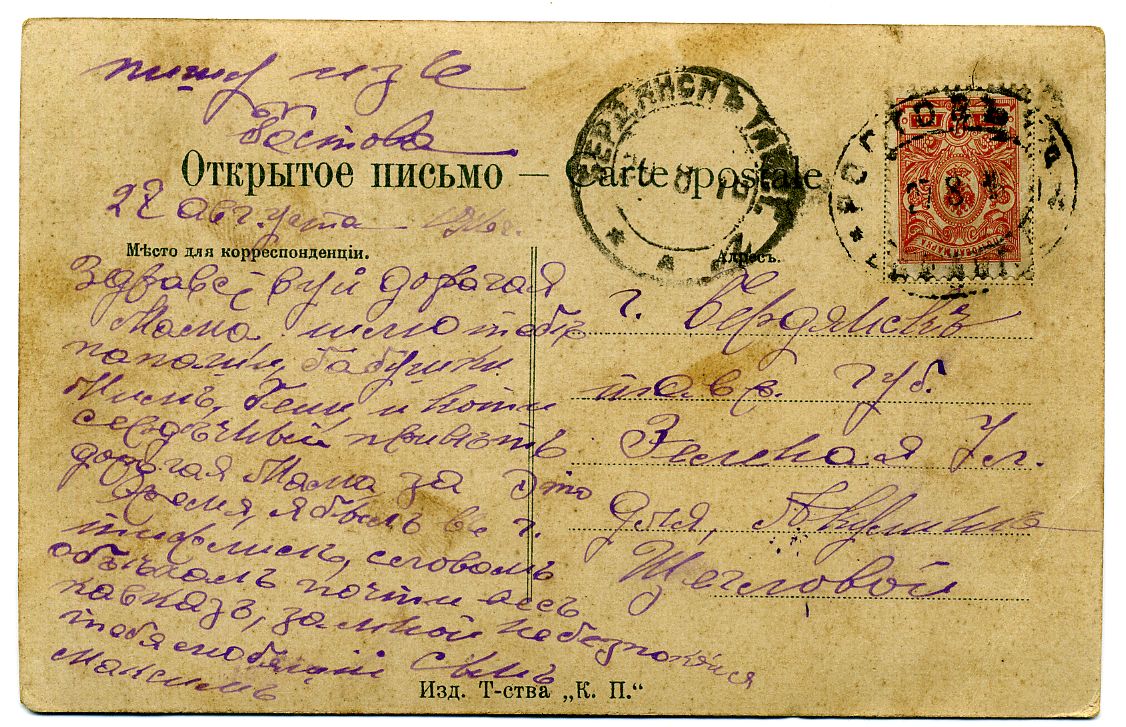 пишу изъ
Ростова
Открытое письмо — Carte postale
27 августа
Мѣсто для корреспонденціи.
Адресъ.
Здравствуй дорогая
Мама шлю тебѣ
папаши, бабушки
и Коти
сердѣчный привѣтъ
дорогая Мама за это
время, я былъ въ г.
Тифлисъ, словомъ
объѣхалъ почти весь
Кавказъ, за мной не безпокойся
тебя любящій сынъ
Максимъ
г. Бердянскъ
Тавр. губ.
Зеленая Ул.
для, Акулины
Щегловой
БЕРДЯНСКЪ ТАВР.
РОСТОВЪ
27 8
Изд. Т-ства „К. П.“